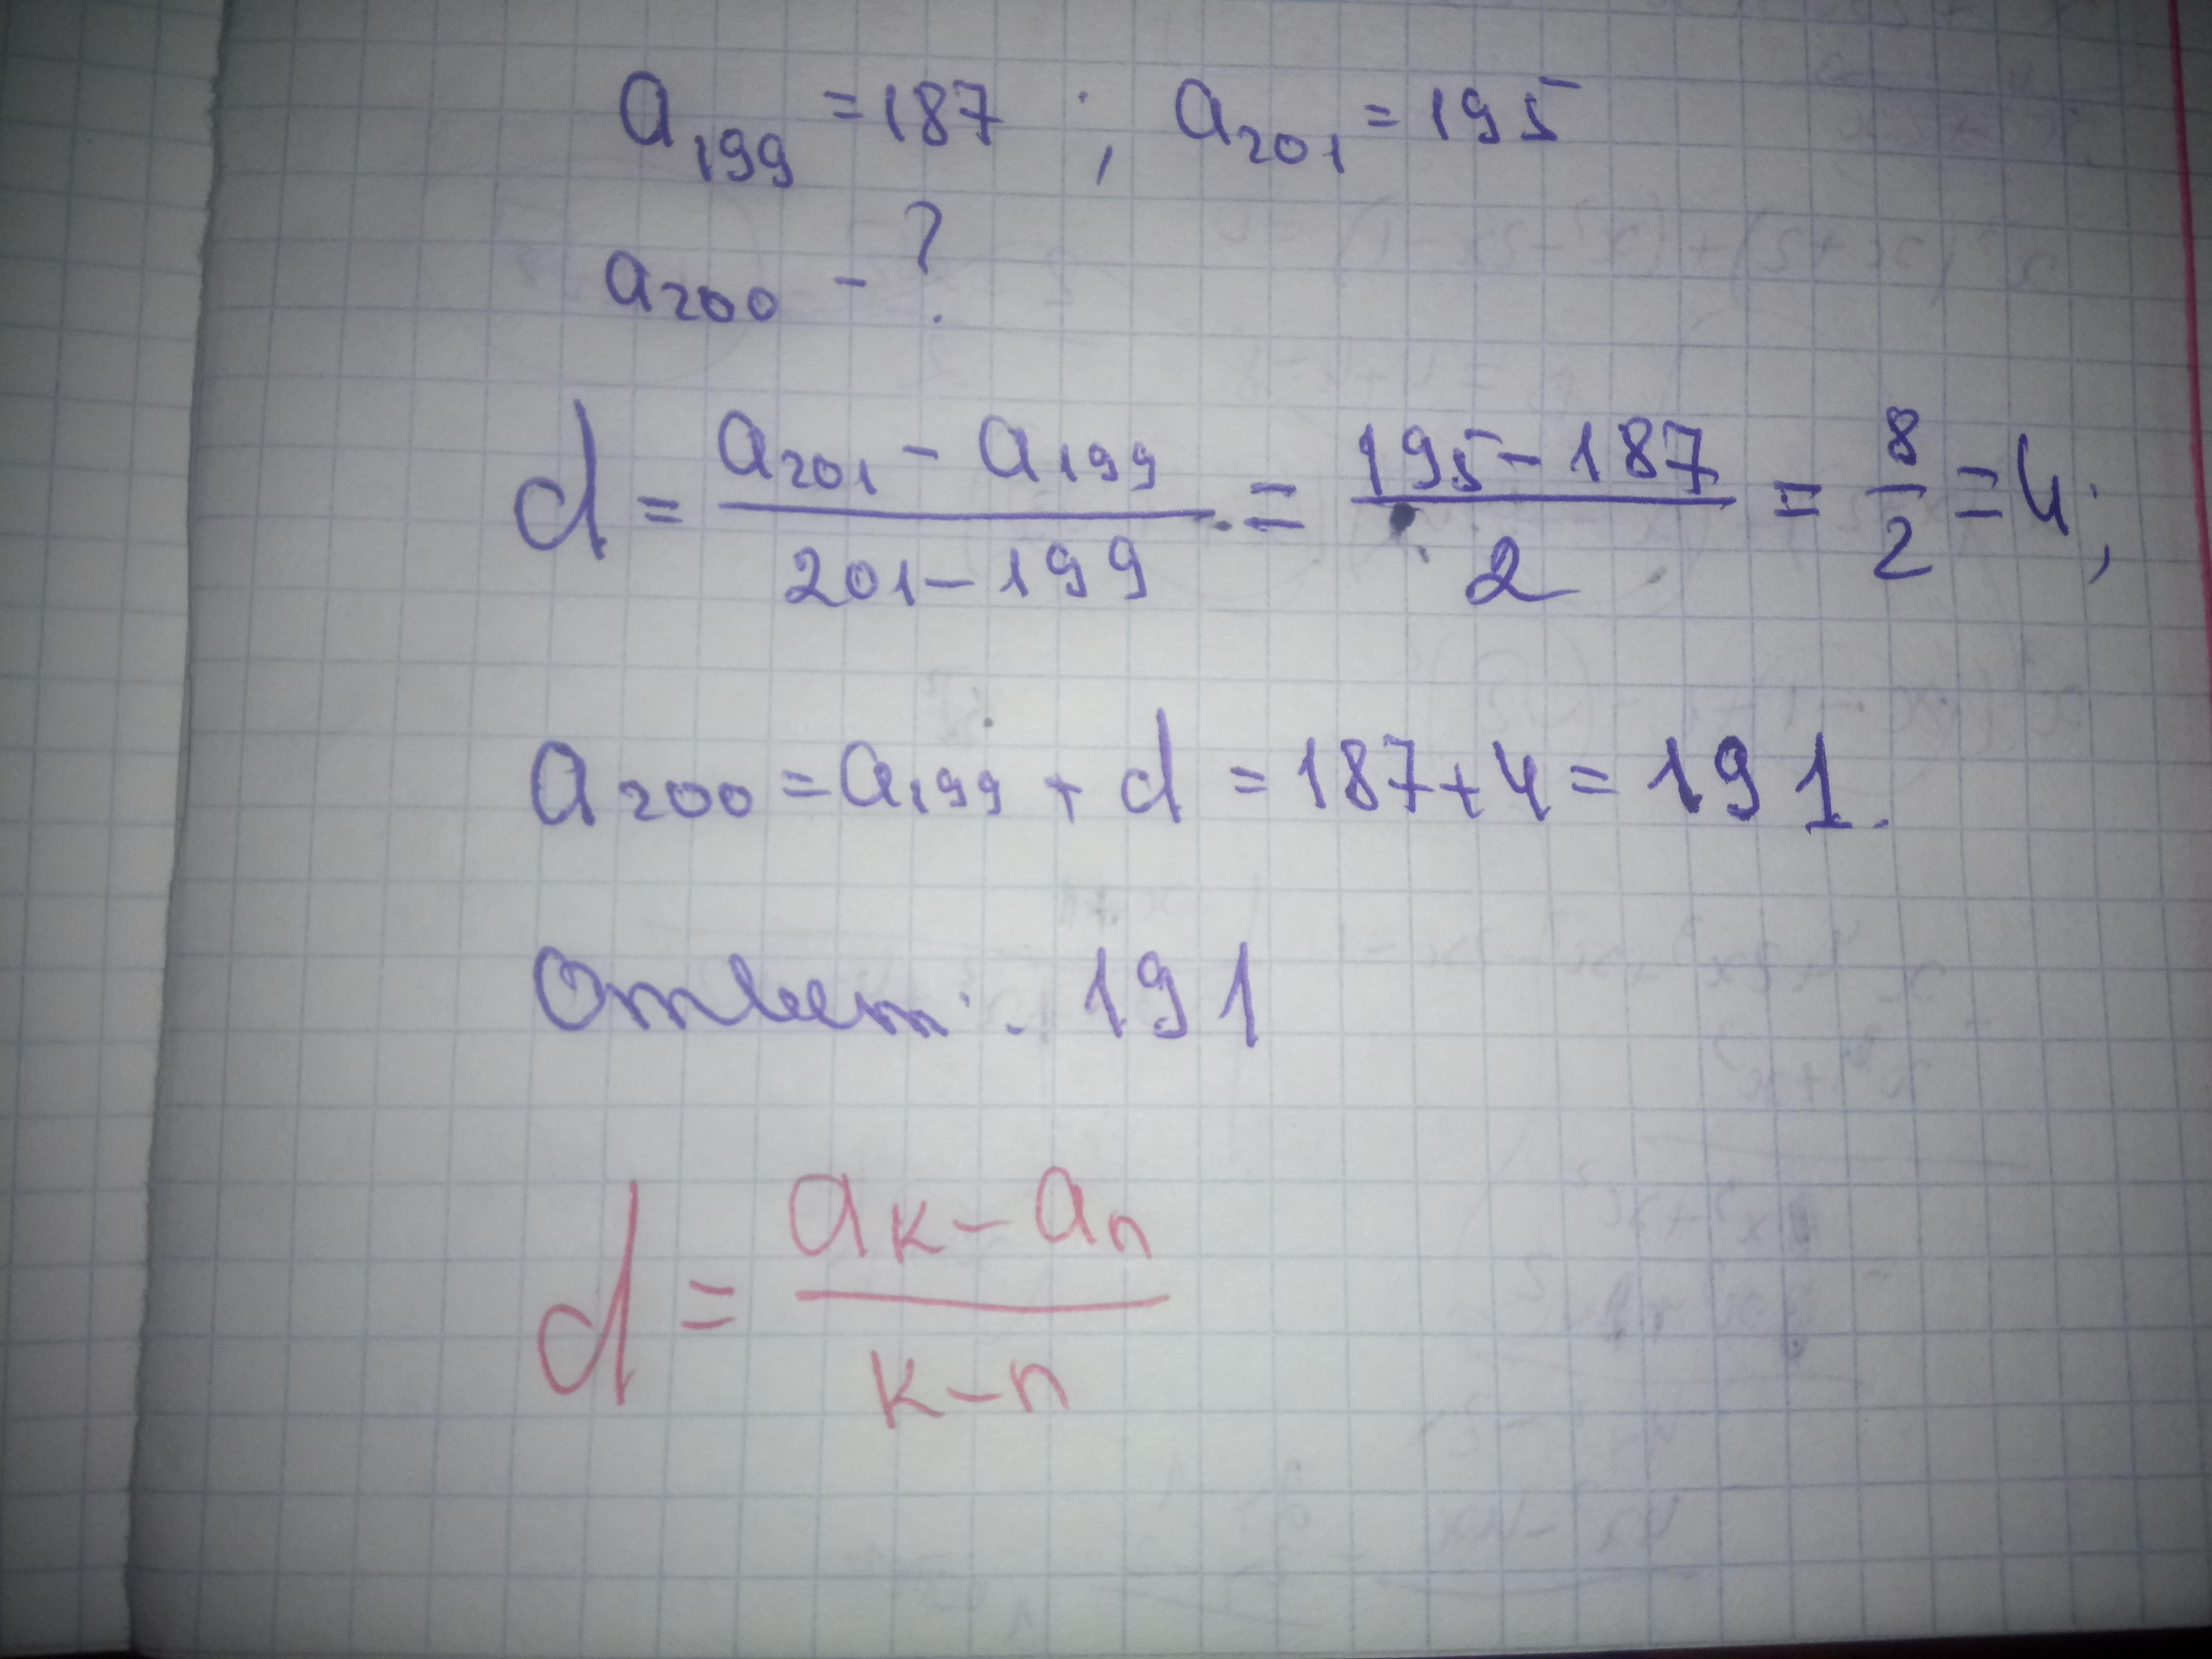 a₁₉₉ = 187 ; a₂₀₁ = 195
a₂₀₀ - ?
d = (a₂₀₁ - a₁₉₉)/(201 - 199) = (195 - 187)/2 = 8/2 = 4;
a₂₀₀ = a₁₉₉ + d = 187 + 4 = 191.
Ответ: 191
d = (aₖ - aₙ)/(k - n)